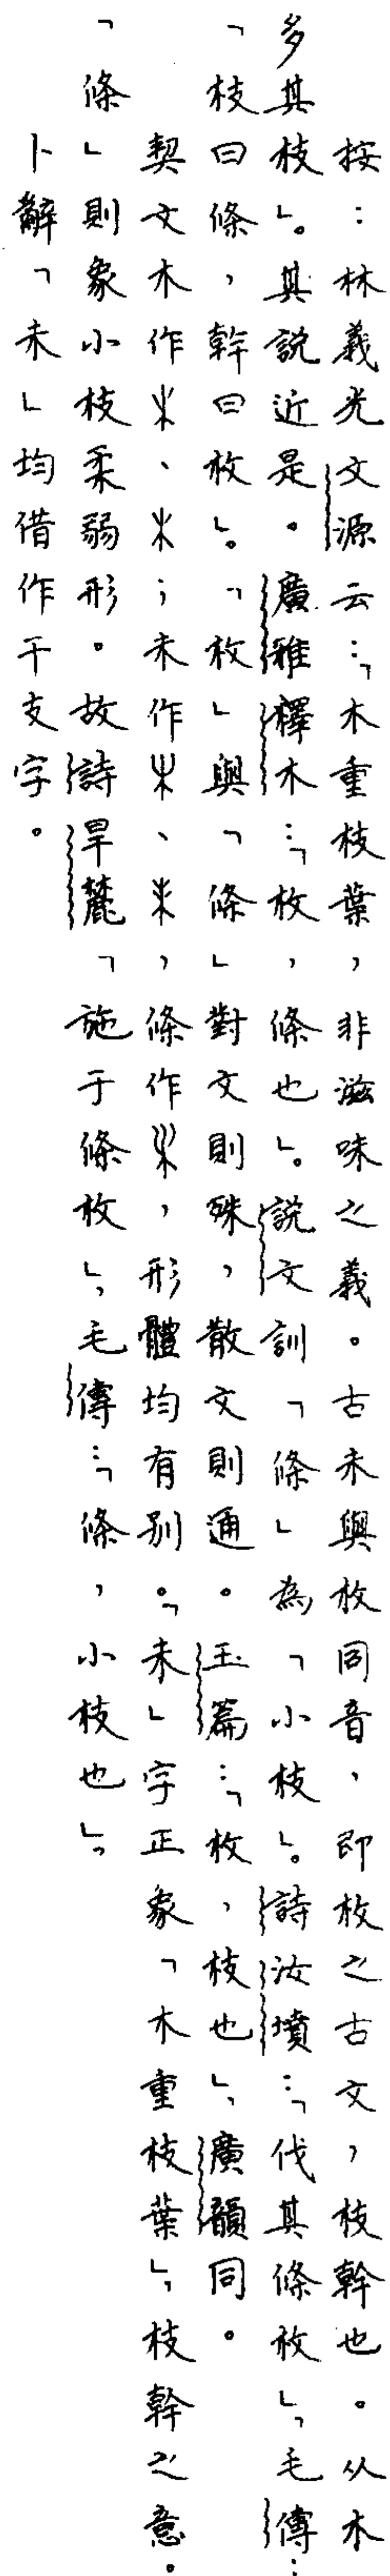 按：林義光文源云：「木重枝葉，非滋味之義。古未與枚同音，即枚之古文，枝幹也。从木
多其枝」。其說近是。廣雅釋木：「枚，條也」。說文訓「條」為「小枝」。詩汝墳：「伐其條枚」，毛傳：
「枝曰條，幹曰枚」。「枚」與「條」對文則殊，散文則通。玉篇：「枚，枝也」，廣韻同。
契文木作、；未作、，條作，形體均有別。「未」字正象「木重枝葉」，枝幹之意。
「條」則象小枝柔弱形。故詩旱麓「施于條枚」，毛傳：「條，小枝也」。
卜辭「未」均借作干支字。